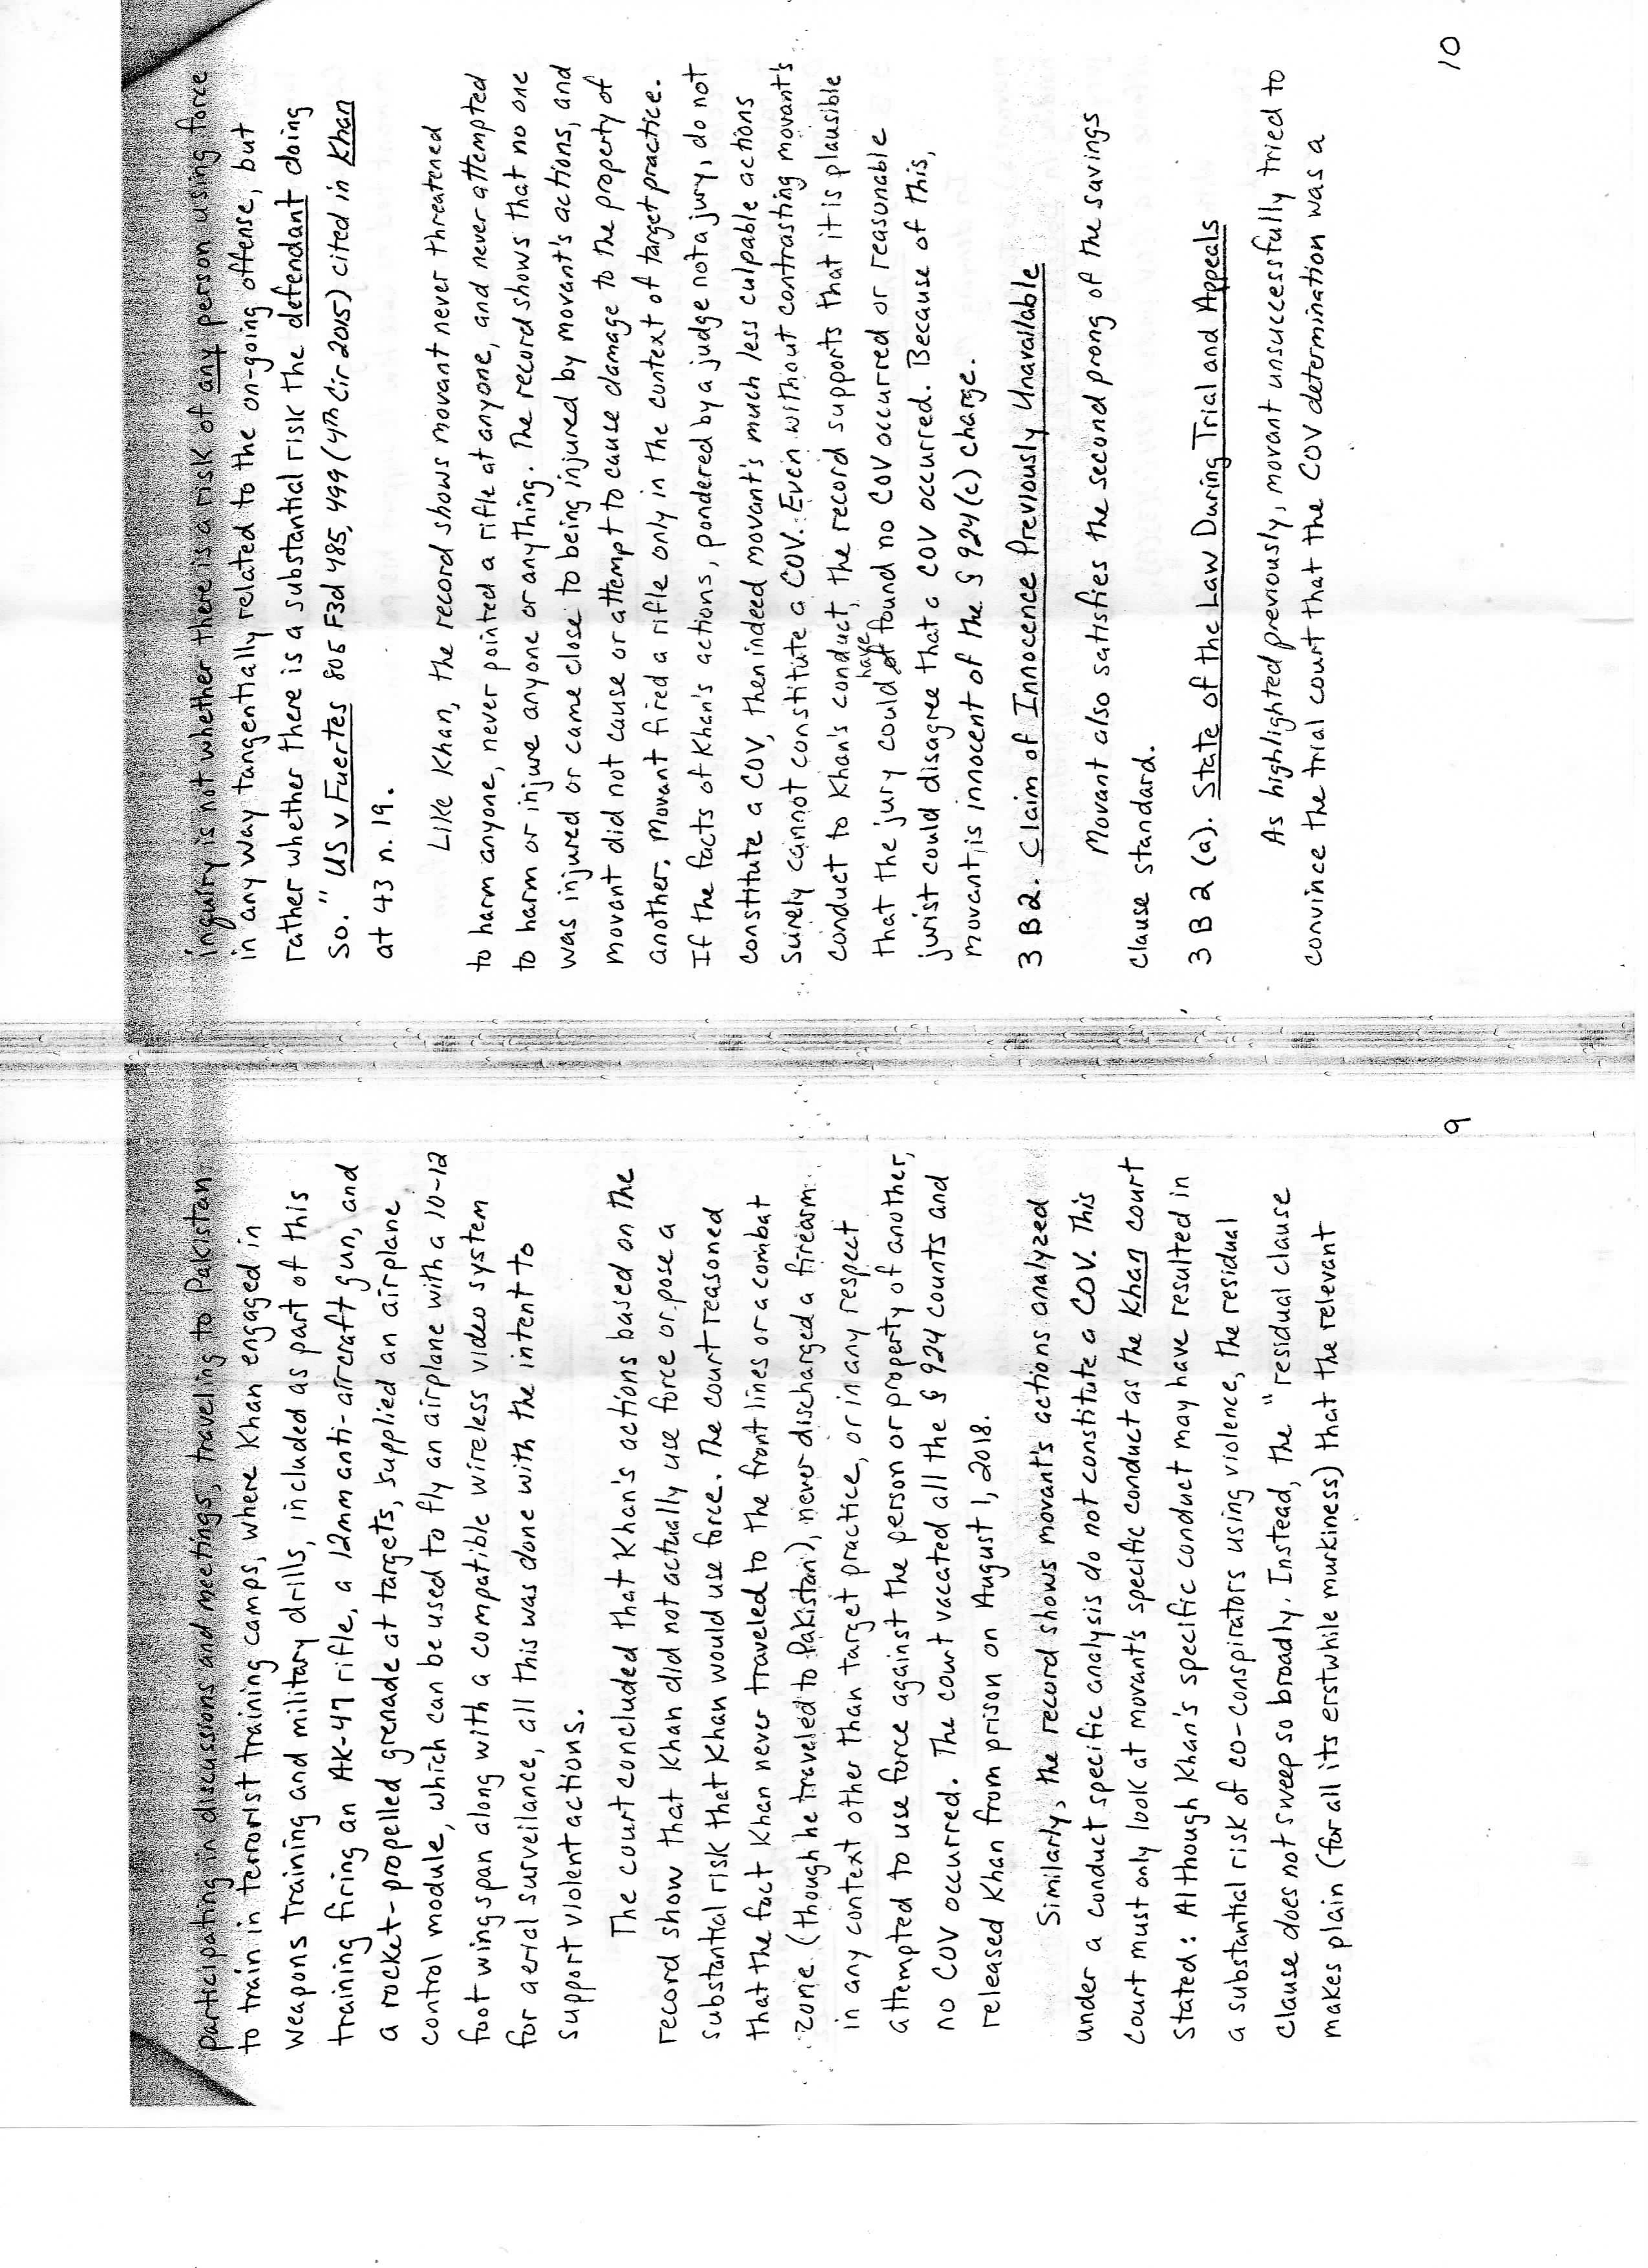 participating in discussions and meetings, traveling to Pakistan
to train in terrorist training camps, where Khan engaged in
weapons training and military drills, included as part of this
training firing an AK-47 rifle, a 12mm anti-aircraft gun, and
a rocket-propelled grenade at targets, supplied an airplane
control module, which can be used to fly an airplane with a 10-12
foot wingspan along with a compatible wireless video system
for aerial surveilance, all this was done with the intent to
support violent actions.
The court concluded that Khan's actions based on the
record show that Khan did not actually use force or pose a
substantial risk that Khan would use force. The court reasoned
that the fact Khan never traveled to the front lines or a combat
zone (though he traveled to Pakistan), never discharged a firearm
in any context other than target practice, or in any respect
attempted to use force against the person or property of another,
no COV occurred. The court vacated all the § 924 counts and
released Khan from prison on August 1, 2018.
Similarly, the record shows movant's actions analyzed
under a conduct specific analysis do not constitute a COV. This
court must only look at movant's specific conduct as the Khan court
stated: Although Khan's specific conduct may have resulted in
a substantial risk of co-conspirators using violence, the residual
clause does not sweep so broadly. Instead, the "residual clause
makes plain (for all its erstwhile murkiness) that the relevant
9
inquiry is not whether there is a risk of any person using force
in any way tangentially related to the on-going offense, but
rather whether there is a substantial risk the defendant doing
so." US v Fuertes 805 F3d 485, 499 (4th Cir 2015) cited in Khan
at 43 n.19.
Like Khan, the record shows movant never threatened
to harm anyone, never pointed a rifle at anyone, and never attempted
to harm or injure anyone or anything. The record shows that no one
was injured or came close to being injured by movant's actions, and
movant did not cause or attempt to cause damage to the property of
another. Movant fired a rifle only in the context of target practice.
If the facts of Khan's actions, pondered by a judge not a jury, do not
constitute a COV, then indeed movant's much less culpable actions
surely cannot constitute a COV. Even without contrasting movant's
conduct to Khan's conduct, the record supports that it is plausible
that the jury could have found no COV occurred or reasonable
jurist could disagree that a COV occurred. Because of this,
movant is innocent of the § 924(c) charge.
3 B 2. Claim of Innocence Previously Unavailable
Movant also satisfies the second prong of the savings
clause standard.
3 B 2 (a). State of the Law During Trial and Appeals
As highlighted previously, movant unsuccessfully tried to
convince the trial court that the COV determination was a
10